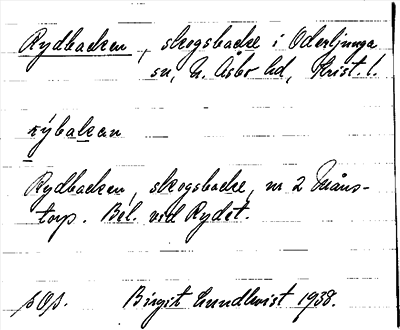 Rydbacken, skogsbacke i Oderljunga
sn, N. Åsbo hd, Krist. l.
rýbakan
Rydbacken, skogsbacke, nr 2 Måns-
torp. Bel. ved Rydet.
sOp. Birgit Lundkvist 1938.